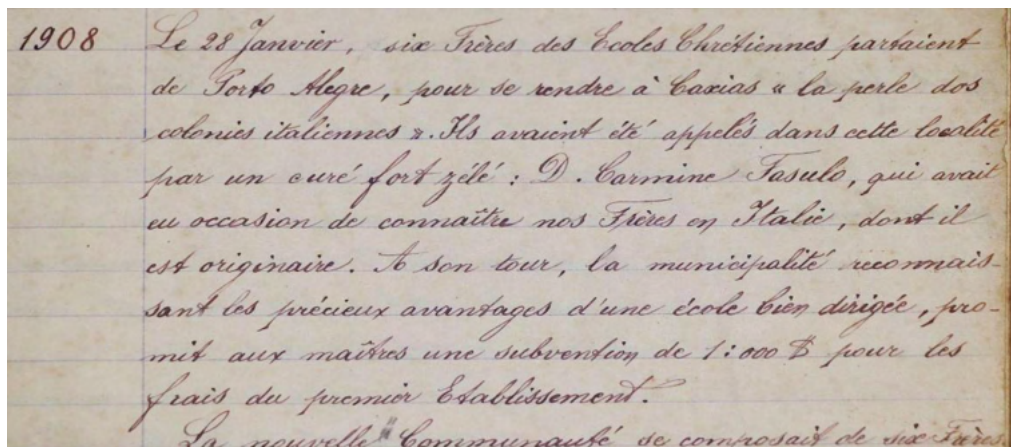 1908 Le 28 Janvier, six Frères des Ecoles Chrétiennes partaient
de Porto Alegre, pour se rendre à Caxias « la perle dos
colonies italiennes ». Ils avaient été appelés dans cette localité
par un curé fort zélé : D. Carmine Fasulo, qui avait
eu occasion de connaître nos Frères en Italie, dont il
est originaire. A son tour, la municipalité reconnais-
sant les précieux avantages d'une école bien dirigée, pro-
mit aux maîtres une subvention de 1:000 $ pour les
frais du premier Etablissement.
La nouvelle Communauté se composait de six Frères